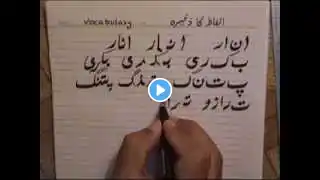 Vocabulary الفاظ کا ذخیرہ
ا ن ا ر ا نـ ا ر انار
ب ک ر ی بـ کـ ر ی بکری
پ ت ن گ پتنگ
ت ر ا ز و تـ ر ا